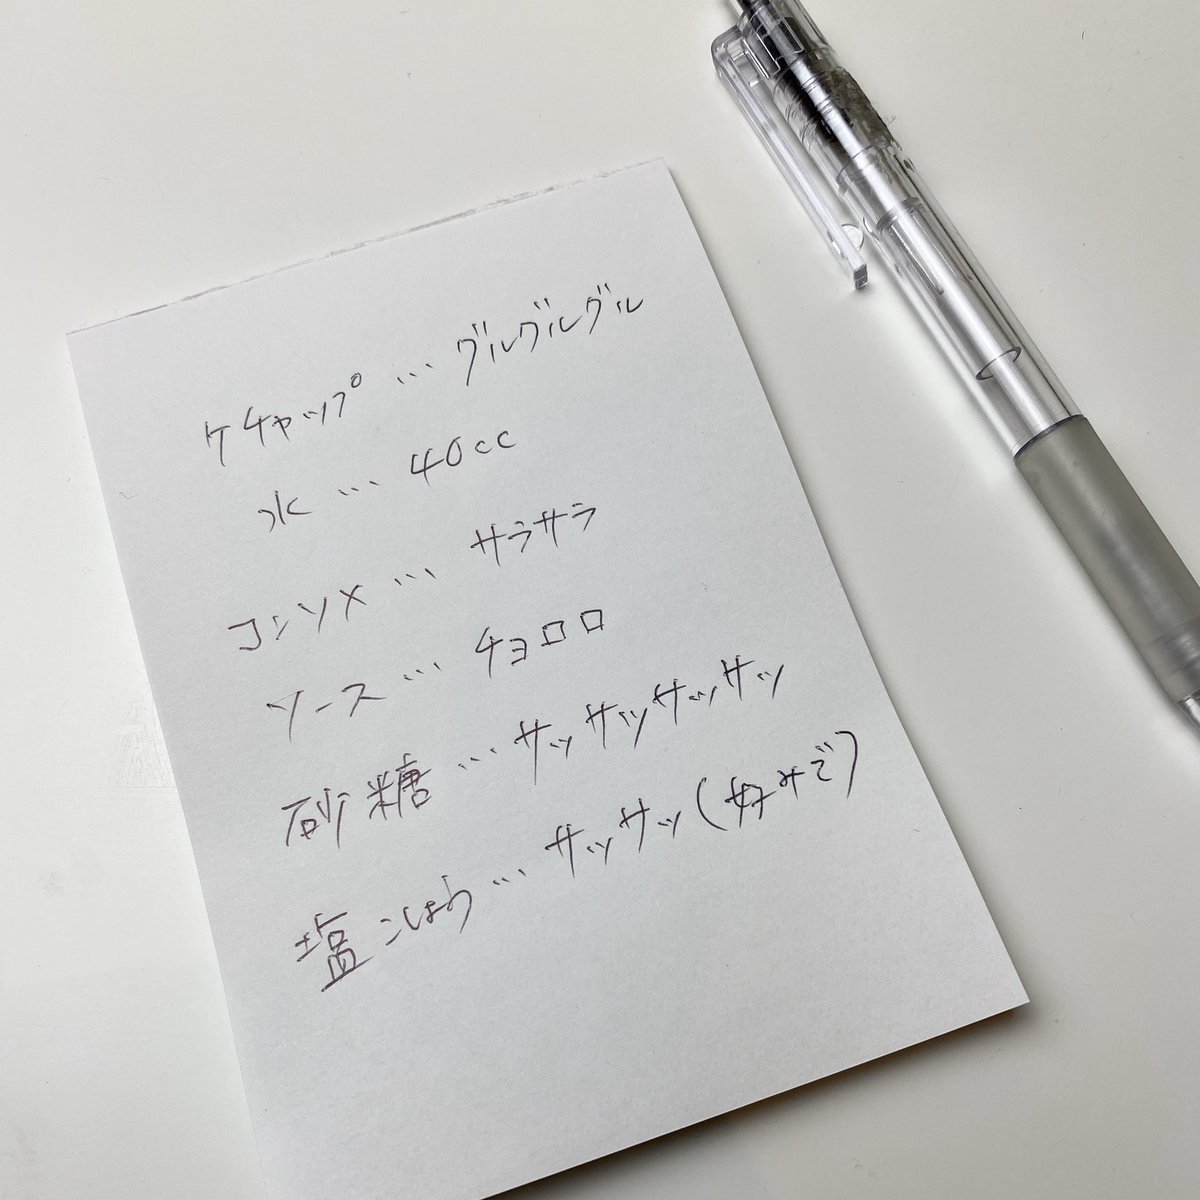 ケチャップ…グルグルグル
水…40cc
コンソメ…サラサラ
ソース…チョロロ
砂糖…サッサッサッサッ
塩こしょう…サッサッ(好みで)